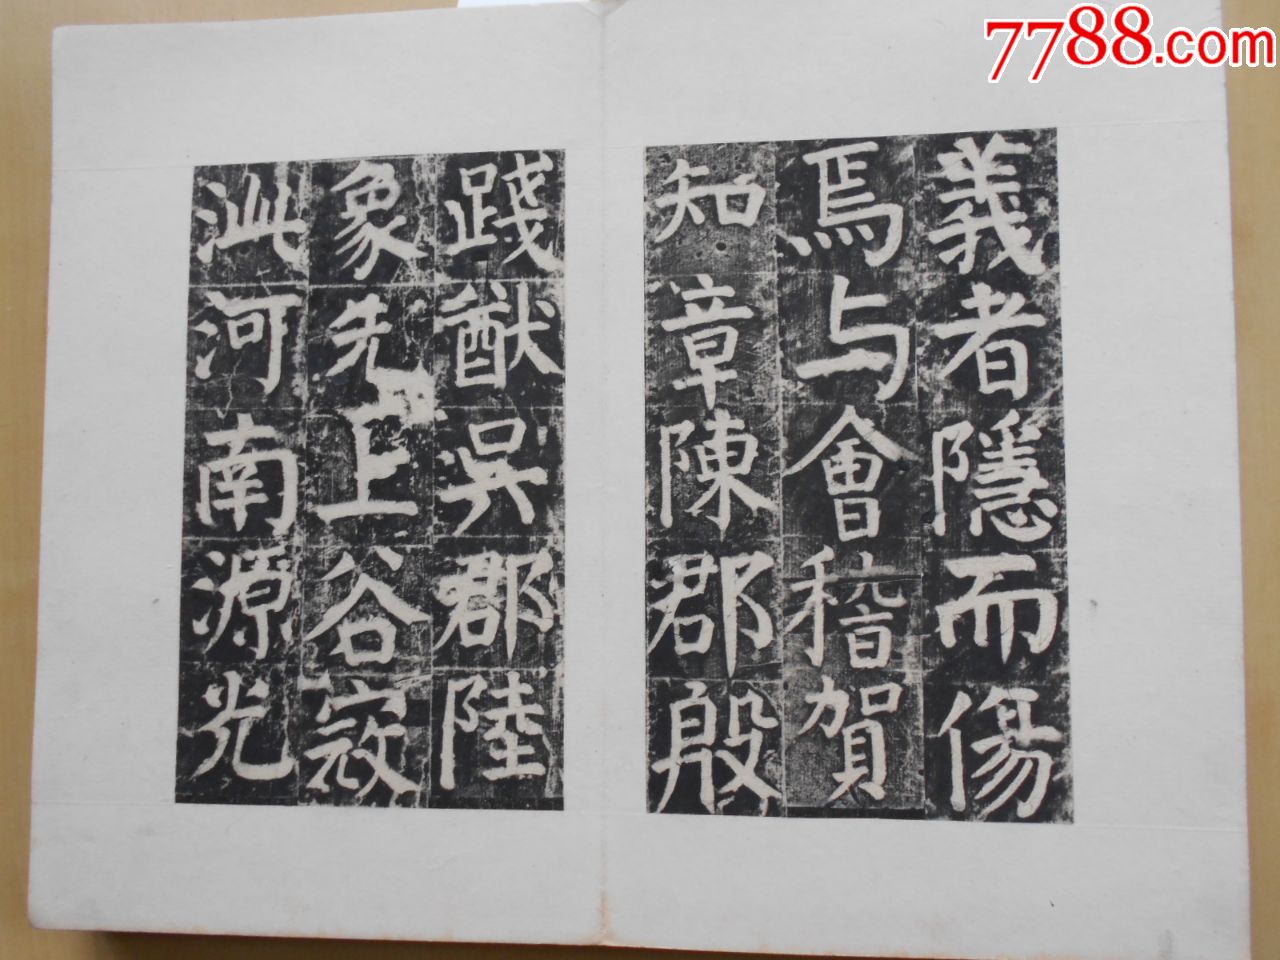 7788.com
義者隱而傷
焉与會稽賀
知章陳郡殷
踐猷吳郡陸
象先上谷寇
泚河南源光